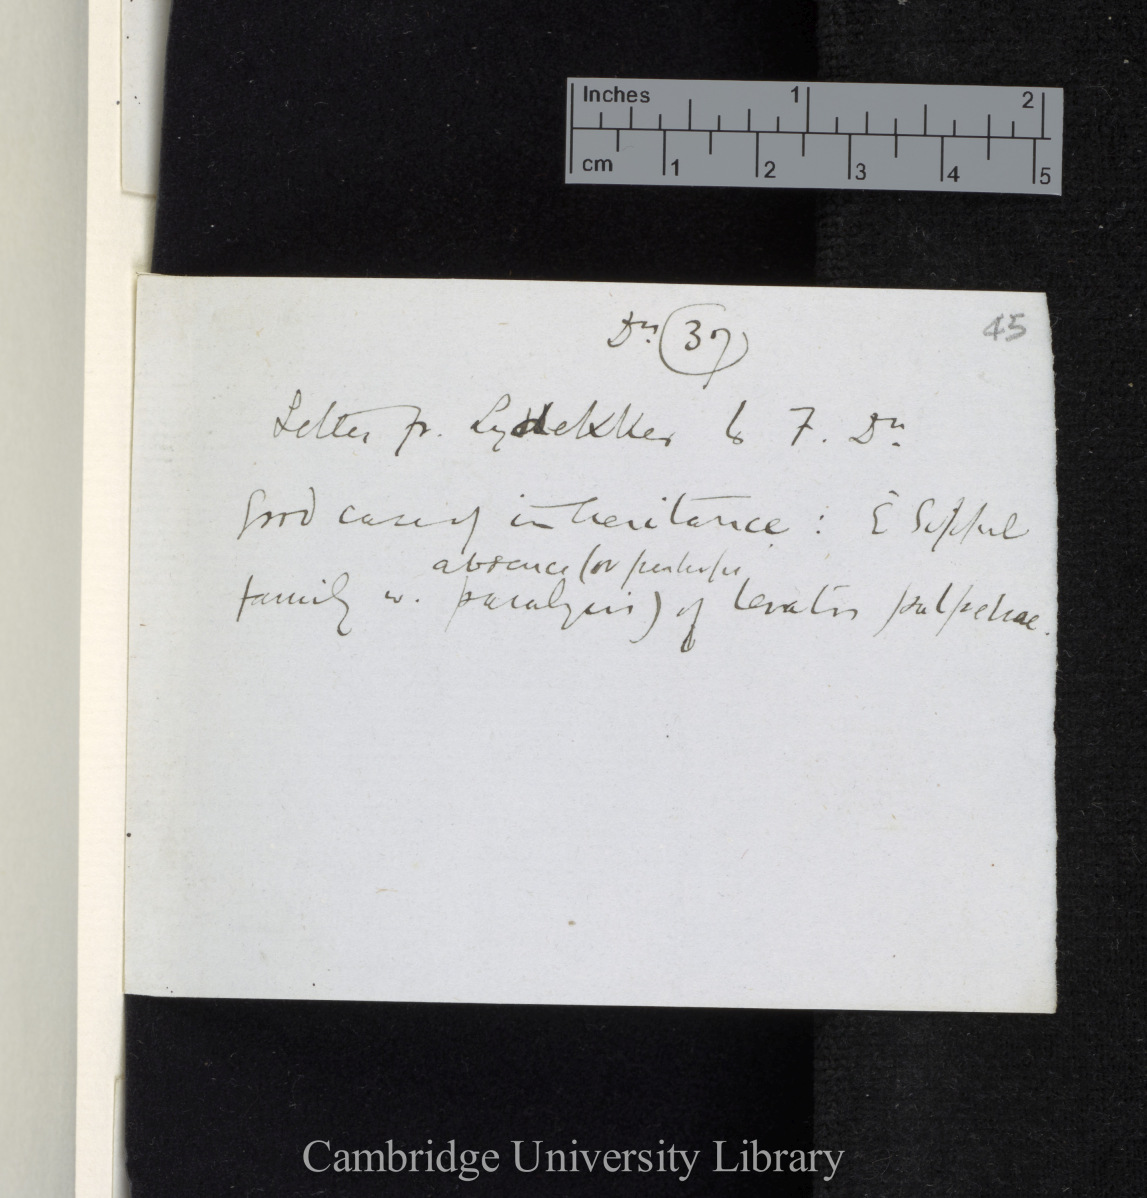 Inches 1 2
cm 1 2 3 4 5
Dn 37 45
Letter fr. Lydekker to F. Dn
Good case of inheritance : E
absence (or perhaps
family w. paralysis) of levator palpebrae.
Cambridge University Library